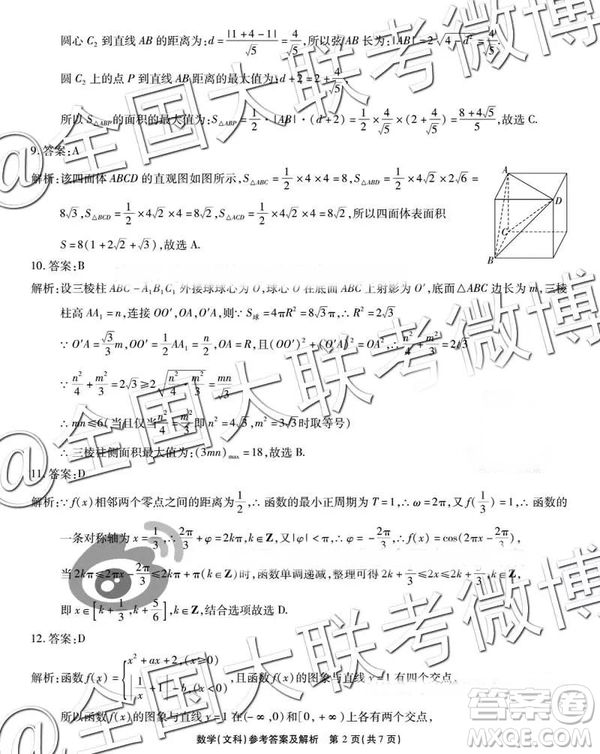 圆心 C₂ 到直线 AB 的距离为:d=|1+4-1|/√5=4/√5,所以弦 AB 长为:|AB|=2√(4-d²)=4/√5
圆 C₂ 上的点 P 到直线 AB 距离的最大值为:d+2=2+4/√5
所以 S△ABP 的面积的最大值为:S△ABP=1/2·|AB|·(d+2)=1/2×4/√5×(2+4/√5)=(8+4√5)/5,故选 C.
9. 答案:A
解析:该四面体 ABCD 的直观图如图所示,S△ABC=1/2×4×4=8,S△ABD=1/2×4√2×2√6=
8√3,S△BCD=1/2×4√2×4=8√2,S△ACD=1/2×4√2×4=8√2,所以四面体表面积
S=8(1+2√2+√3),故选 A.
A
D
C
B
10. 答案:B
解析:设三棱柱 ABC-A₁B₁C₁ 外接球球心为 O,球心 O 在底面 ABC 上射影为 O′,底面△ABC 边长为 m,三棱
柱高 AA₁=n,连接 OO′,OA,O′A,则∵ S球=4πR²=8√3π,∴ R²=2√3
∵ O′A=√3/3 m,OO′=1/2 AA₁=n/2,OA=R,且(OO′)²+(O′A)²=R²=n²/4+m²/3=2√3
∵ n²/4+m²/3=2√3≥2√(n²/4·m²/3)=mn/√3
∴ mn≤6(当且仅当 n²/4=m²/3 即 n²=4√3,m²=3√3时取等号)
∴ 三棱柱侧面积最大值为:(3mn)max=18,故选 B.
11. 答案:D
解析:∵ f(x)相邻两个零点之间的距离为1/2,∴ 函数的最小正周期为 T=1,∴ ω=2π,又 f(1/3)=1,∴ 函数的
一条对称轴为 x=1/3,∴ 2π/3+φ=2kπ,k∈Z,又|φ|<π,∴ φ=-2π/3,∴ f(x)=cos(2πx-2π/3),
当 2kπ≤2πx-2π/3≤2kπ+π,k∈Z时,函数单调递减,整理可得 2k+2/3≤2x≤2k+5/3,k∈Z,
即 x∈[k+1/3,k+5/6],k∈Z,结合选项故选 D.
12. 答案:D
解析:函数 f(x)={x²+ax+2,(x≥0)
,且函数 f(x)的图象与直线 y=1 有四个交点,
∴ 函数 f(x)的图象与直线 y=1 在(-∞,0)和[0,+∞)上各有两个交点.
数学(文科)参考答案及解析 第 2 页(共 7 页)
@全国大联考微博
@全国大联考微博
答案圈
MXQE.COM